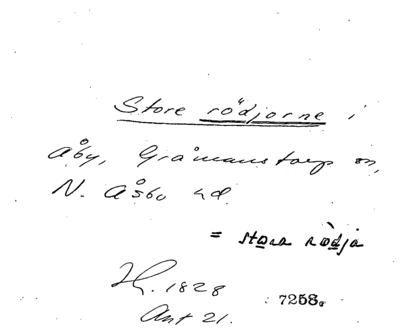 Store rödjorne i
Åby, Gråmanstorp sn,
N. Åsbo hd.
= stora rödja
H. 1828
7258.
Ant 21.